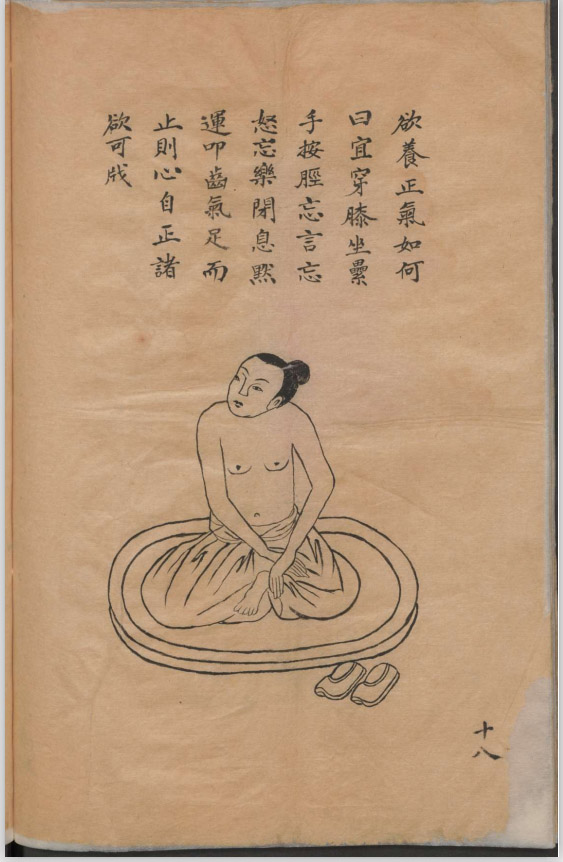 欲養正氣如何
曰宜穿膝坐疊
手按脛忘言忘
怒忘樂閉息默
運叩齒氣足而
止則心自正諸
欲可戕
十八